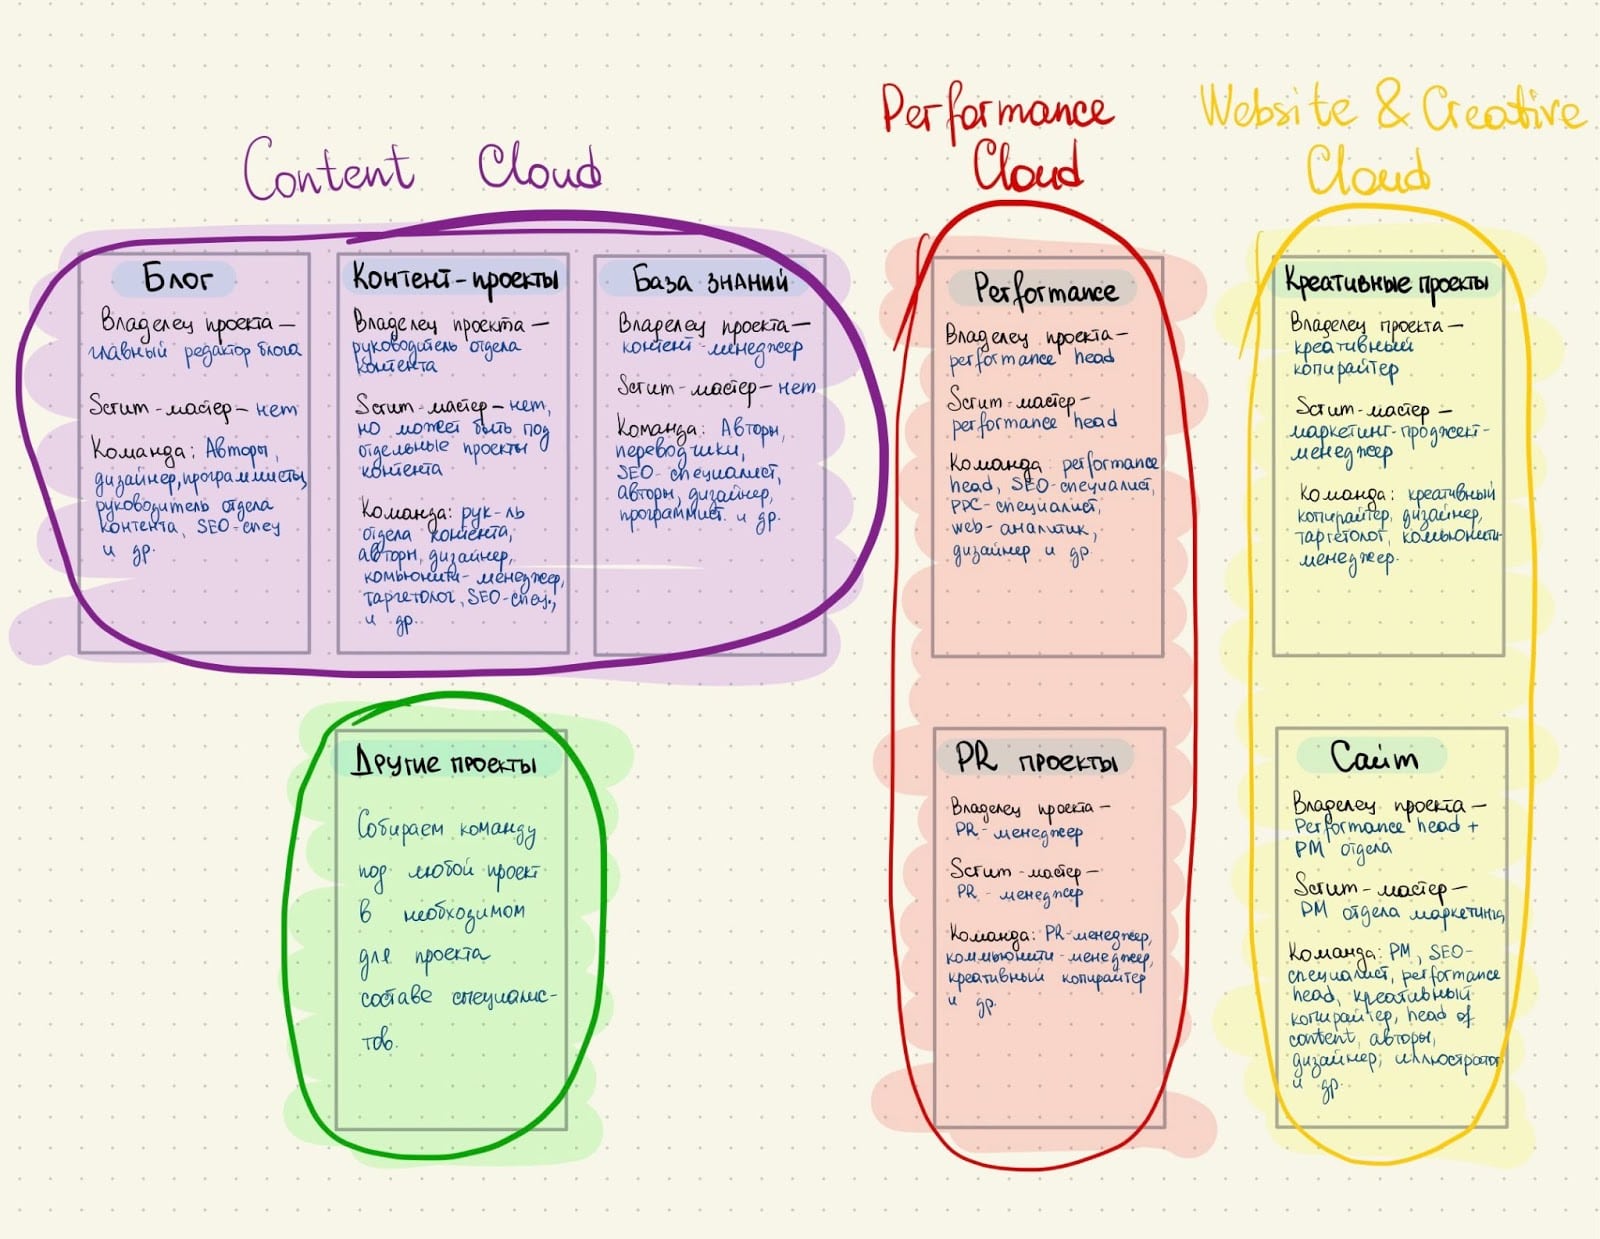 Content Cloud
Блог
Владелец проекта –
главный редактор блога
Scrum-мастер – нет
Команда: Авторы,
дизайнер, программисты,
руководитель отдела
контента, SEO-спец
и др.
Контент-проекты
Владелец проекта –
руководитель отдела
контента
Scrum-мастер – нет,
но может быть под
отдельные проекты
контента
Команда: рук-ль
отдела контента,
авторы, дизайнер,
комьюнити-менеджер,
таргетолог, SEO-спец.,
и др.
База знаний
Владелец проекта –
контент-менеджер
Scrum-мастер – нет
Команда: Авторы,
переводчики,
SEO-специалист,
авторы, дизайнер,
программист. и др.
Другие проекты
Собираем команду
под любой проект
в необходимом
для проекта
составе специалис-
тов.
Performance
Cloud
Performance
Владелец проекта –
performance head
Scrum-мастер –
performance head
Команда: performance
head, SEO-специалист,
PPC-специалист,
web-аналитик,
дизайнер и др.
PR проекты
Владелец проекта –
PR-менеджер
Scrum-мастер –
PR-менеджер
Команда: PR-менеджер,
коммьюнити-менеджер,
креативный копирайтер
и др.
Website & Creative
Cloud
Креативные проекты
Владелец проекта –
креативный
копирайтер
Scrum-мастер –
маркетинг-проджект-
менеджер
Команда: креативный
копирайтер, дизайнер,
таргетолог, комьюнити-
менеджер.
Сайт
Владелец проекта –
Performance head +
PM отдела
Scrum-мастер –
PM отдела маркетинга
Команда: PM, SEO-
специалист, performance
head, креативный
копирайтер, head of
content, авторы,
дизайнер, иллюстратор
и др.